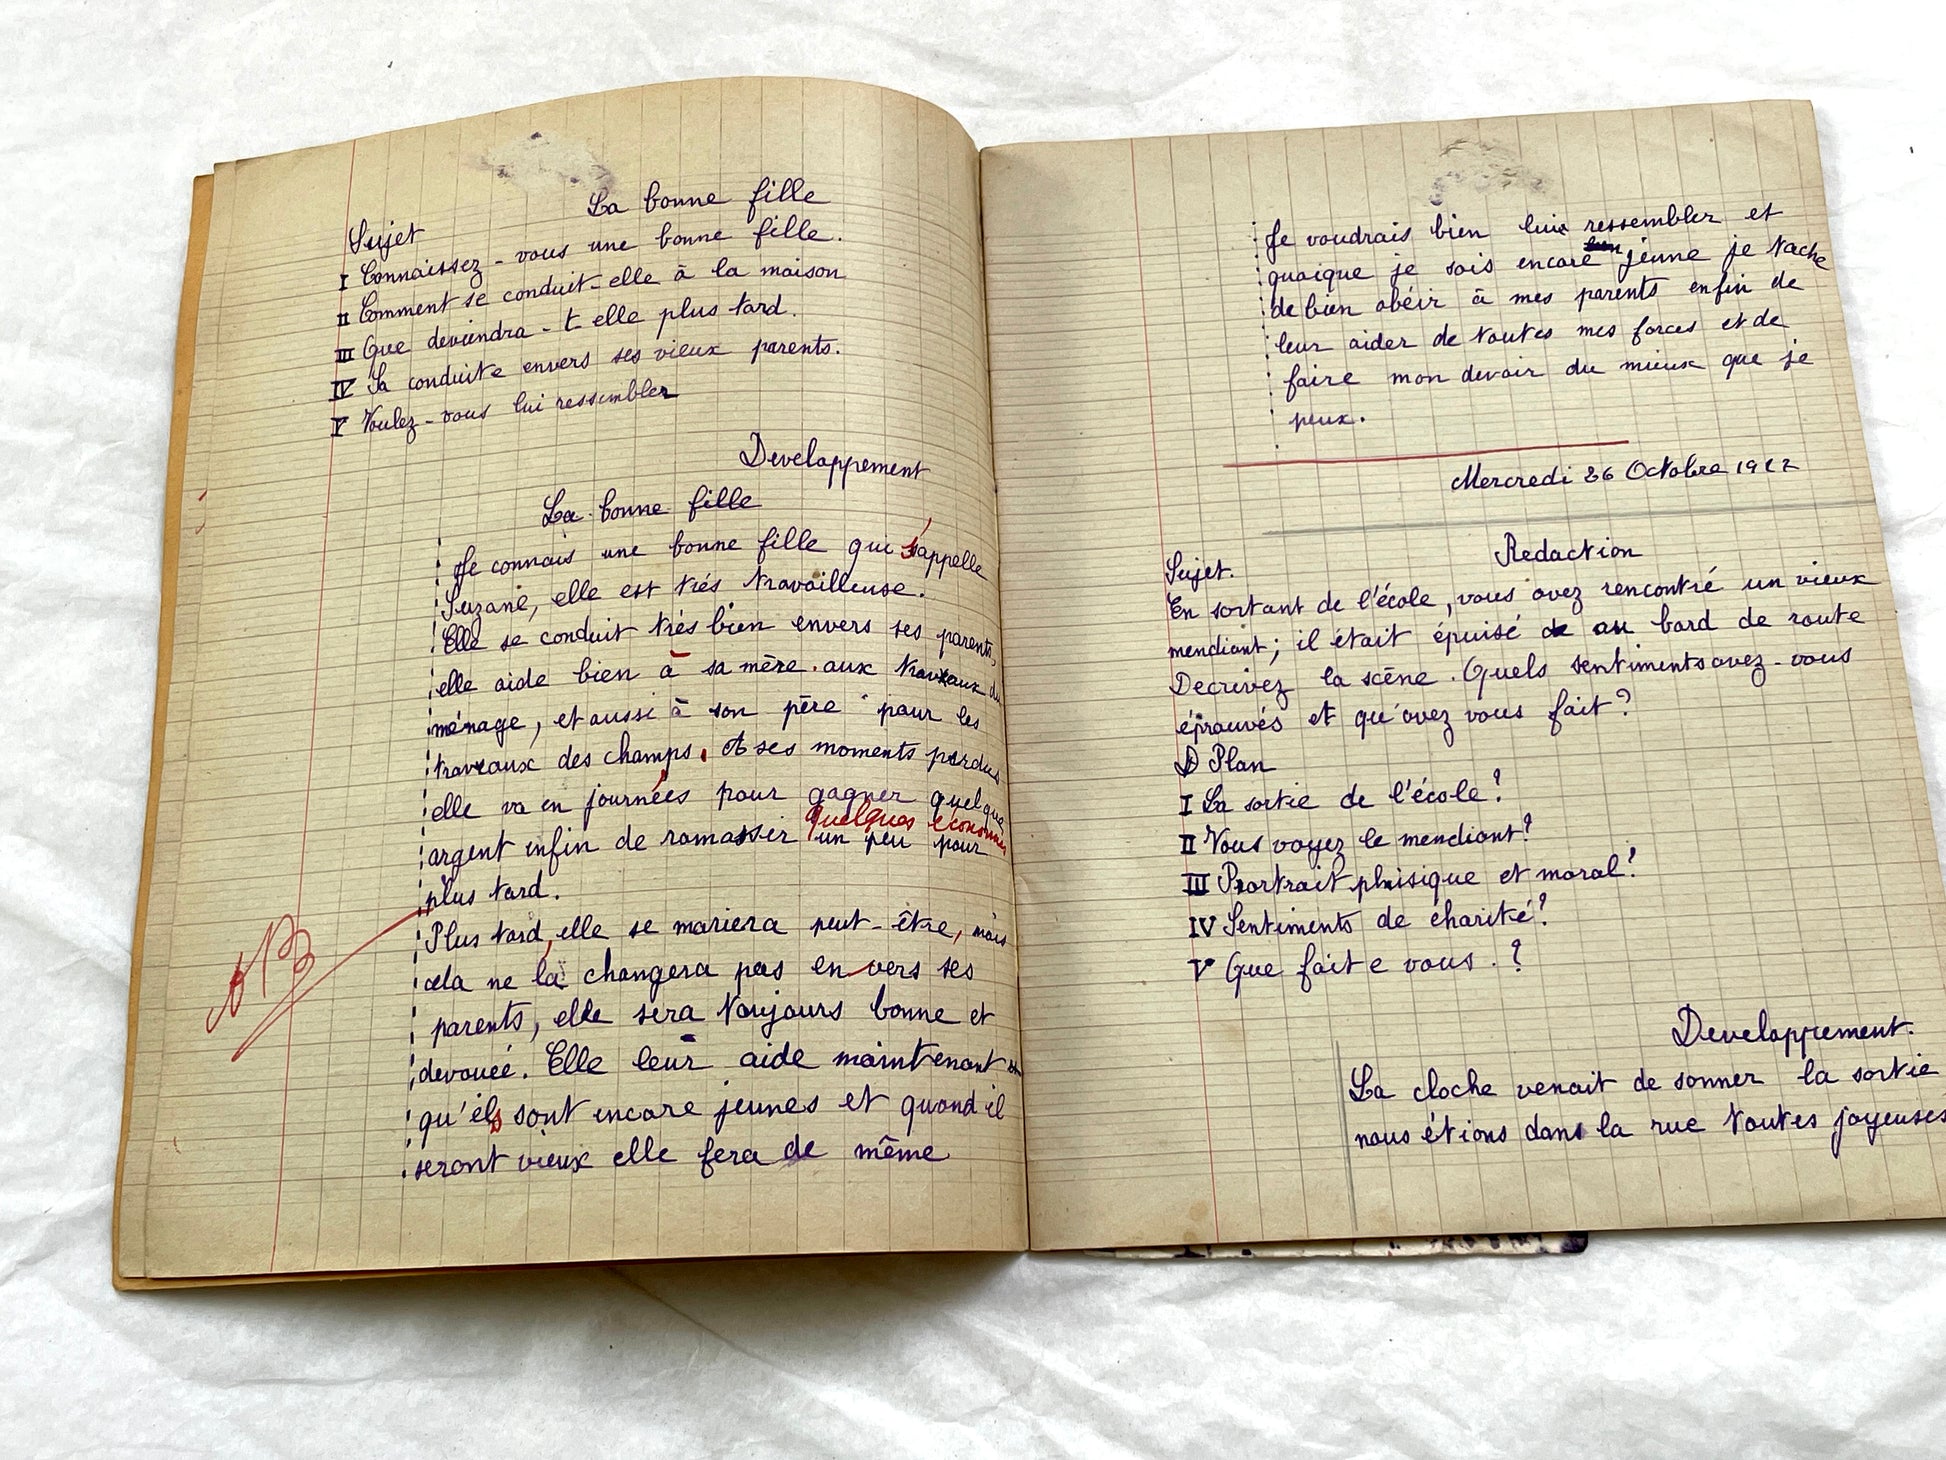 La bonne fille
Sujet
I Connaissez-vous une bonne fille.
II Comment se conduit-elle à la maison
III Que deviendra-t elle plus tard.
IV Sa conduite envers ses vieux parents.
V Voulez-vous lui ressembler
Developpement
La bonne fille
Je connais une bonne fille qui s'appelle
Suzane, elle est trés travailleuse.
Elle se conduit trés bien envers ses parents,
elle aide bien à sa mère. aux travaux du
ménage, et aussi à son père pour les
travaux des champs. A ses moments perdus
elle va en journées pour gagner quelque
quelques économies
argent enfin de ramasser un peu pour
plus tard.
Plus tard, elle se mariera peut-être, mais
cela ne la changera pas envers ses
parents, elle sera toujours bonne et
devouée. Elle leur aide maintenant
qu'ils sont encore jeunes et quand il
seront vieux elle fera de même
AB
Je voudrais bien lui ressembler et
quoique je sois encore jeune je tache
de bien obéir à mes parents enfin de
leur aider de toutes mes forces et de
faire mon devoir du mieux que je
peux.
Mercredi 26 Octobre
Redaction
Sujet.
En sortant de l'école, vous avez rencontré un vieux
mendiant; il était épuisé au bord de route
Decrivez la scène. Quels sentiments avez-vous
éprouvés et qu'avez vous fait?
Plan
I La sortie de l'école?
II Vous voyez le mendiant?
III Portrait phisique et moral?
IV Sentiments de charité?
V Que faite vous.?
Developpement.
La cloche venait de sonner la sortie
nous étions dans la rue toutes joyeuses